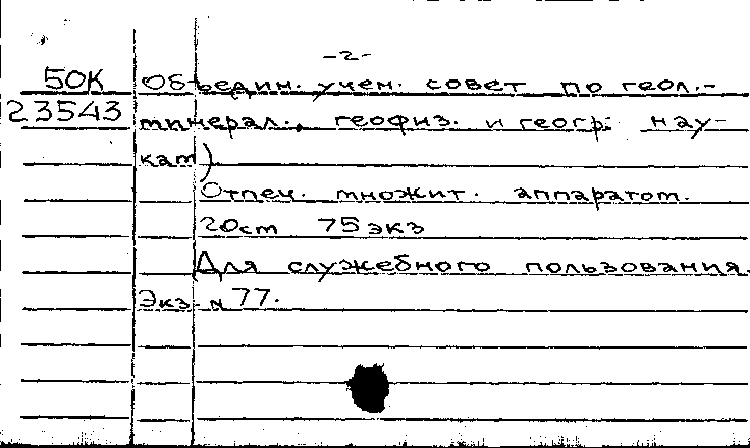 -2-
50К Объедин. учен. совет по геол.-
23543 минерал., геофиз. и геогр. нау-
кам)
Отпеч. множит. аппаратом.
20ст 75 экз
Для служебного пользования.
Экз. N 77.